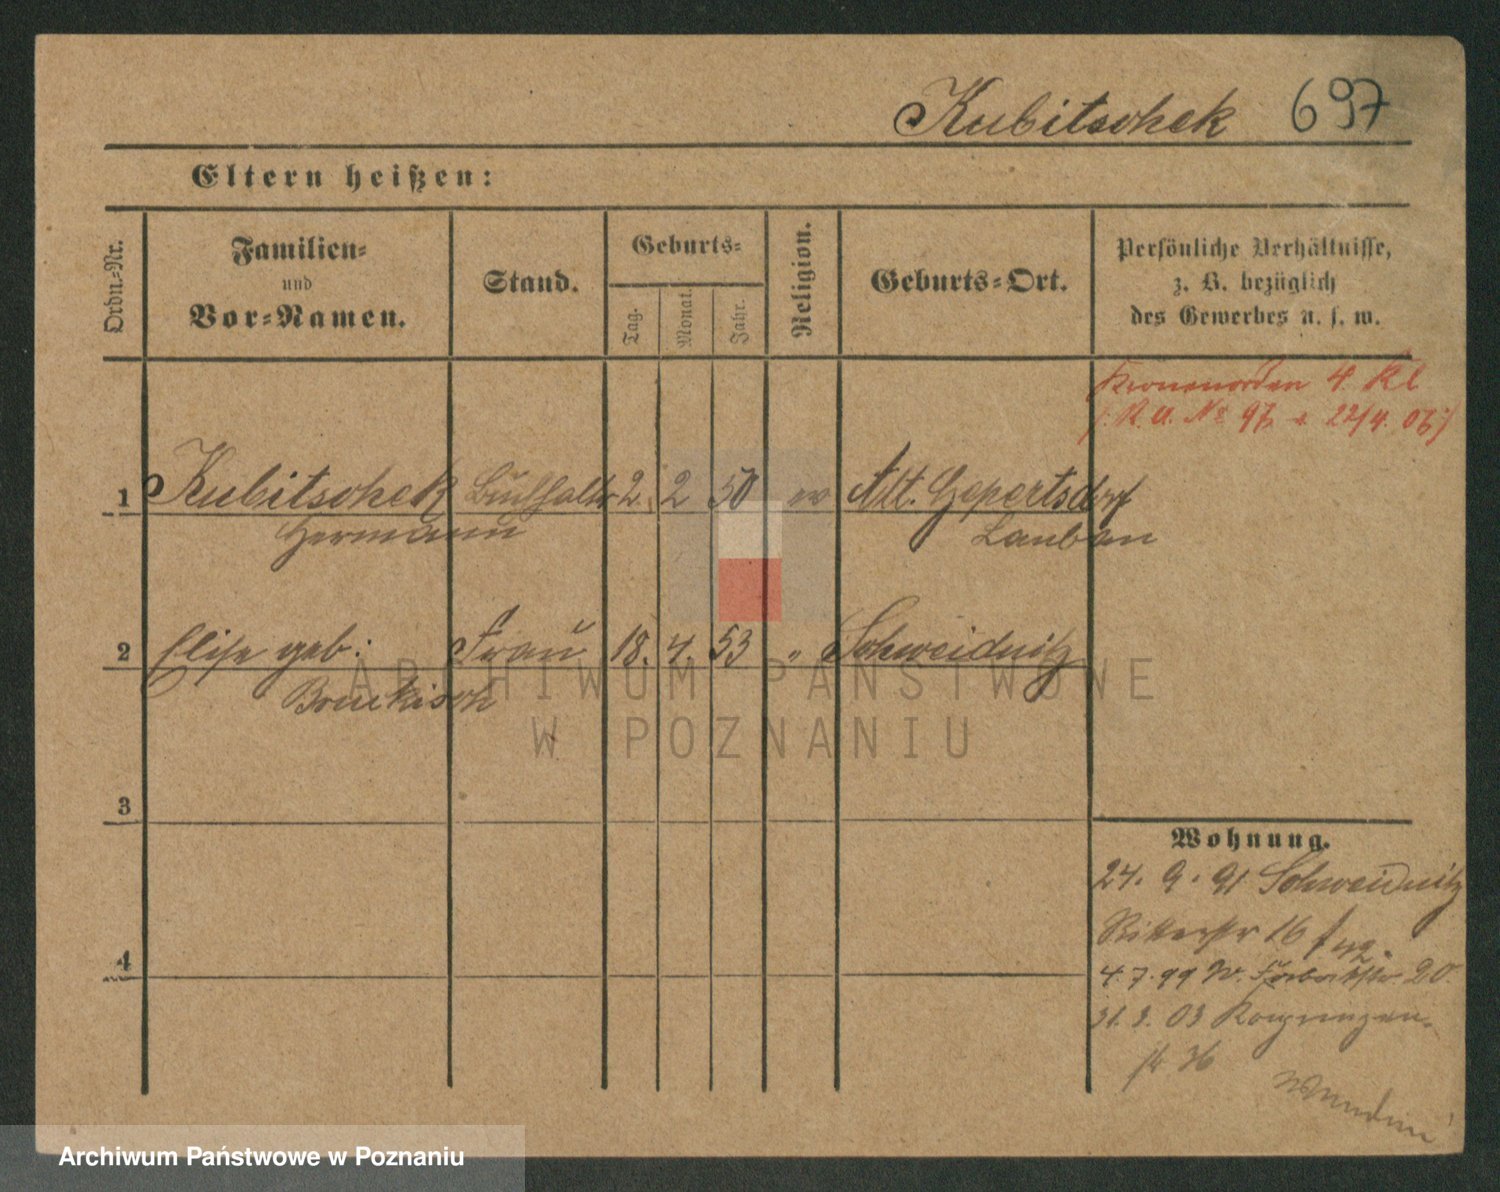 Kubitschek 697
Eltern heißen:
Ordn.-Nr.
Familien-
und
Vor-Namen.
Stand.
Geburts-
Tag.
Monat.
Jahr.
Religion.
Geburts-Ort.
Persönliche Verhältnisse,
z. B. bezüglich
des Gewerbes u. s. w.
Kronenorden 4. Kl
(: R. A. No 97 v. 22/4. 06 :)
1 Kubitschek Buchhalter 2. 2 50 ev Alt. Gepertsdorf
Hermann Lauban
2 Elise geb: Frau 18. 4. 53 " Schweidnitz
ARCHIWUM PAŃSTWOWE
W POZNANIU
3
4
Wohnung.
24. 9. 91 Schweidnitz
Ritterstr 16
4.7.99 W. 20.
31. 3. 03
str 36
Archiwum Państwowe w Poznaniu